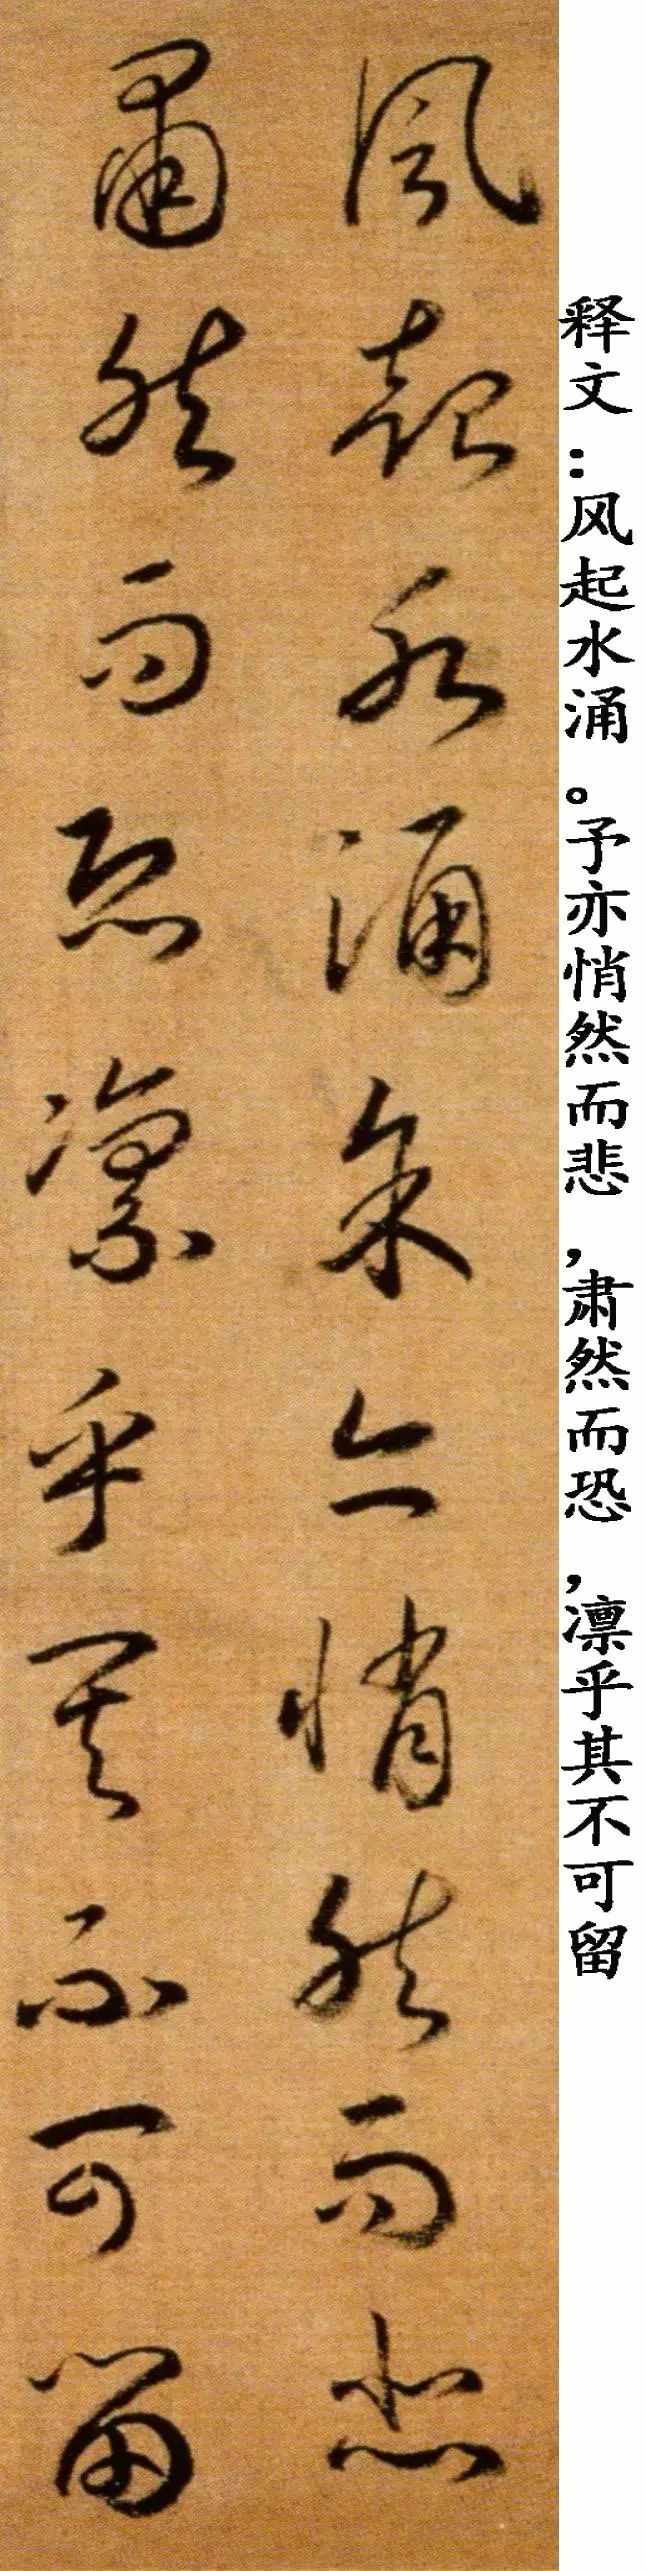 释文：风起水涌。予亦悄然而悲，肃然而恐，凛乎其不可留
風起水涌余亦悄然而悲
肅然而恐凛乎其不可留